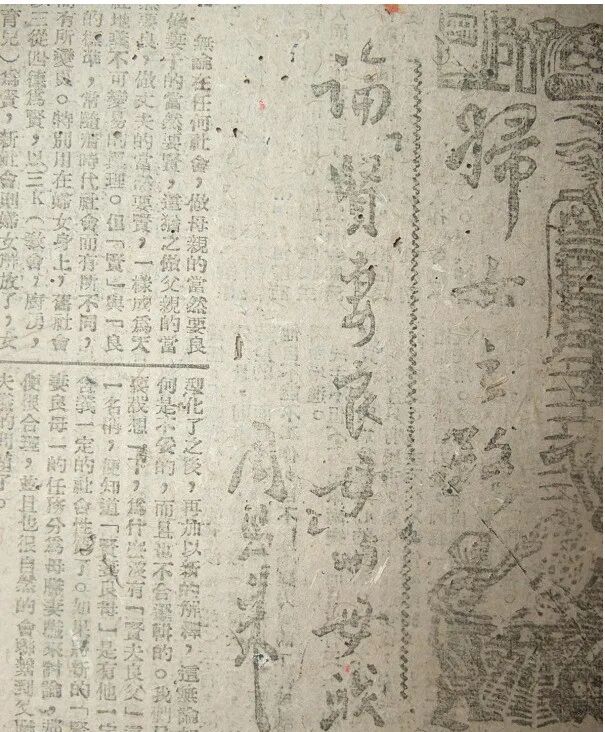 婦女之路
論賢妻良母與母職
周恩来
無論在任何社會，做母親的當然要良
，做妻子的當然要賢，這猶之做父親的當
然要良，做丈夫的當然要賢，一樣成為天
經地義不可變易的真理。但「賢」與「良
的標準，常隨着時代社會而有所不同，
而有所變更。特別用在婦女身上，舊社會
以三從四德為賢，以三K（教會，廚房，
育兒）為賢，新社會則婦女解放了，女
理化了之後，再加以新的解釋，這無論如
何是不妥的，而且也不合邏輯的。我們只
要試想一下，為什麼沒有「賢夫良父」這
一名稱，便知道「賢妻良母」是有他一定
含義一定的社會性質了。如果將新的「賢
妻良母」的任務分為母職妻職來討論，那
便很合理，並且也很自然的會聯繫到父職
夫職的問題了。